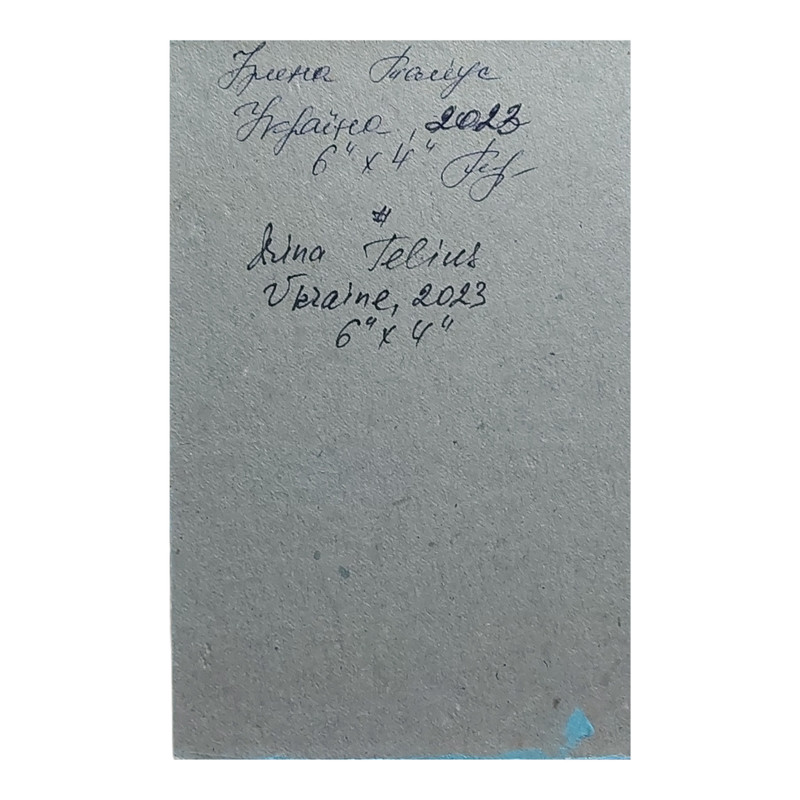 Ірина Теліус
Україна, 2023
6" x 4"
#
Irina Telius
Ukraine, 2023
6" x 4"